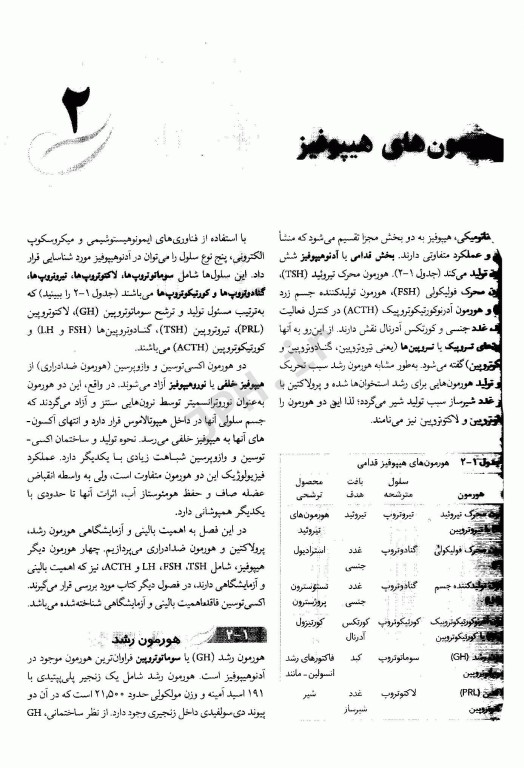 ۲
هورمون‌های هیپوفیز
هیپوفیز به دو بخش مجزا تقسیم می‌شود که منشأ
و عملکرد متفاوتی دارند. بخش قدامی یا آدنوهیپوفیز شش
تولید می‌کند (جدول ۱-۲). هورمون محرک تیروئید (TSH)،
محرک فولیکولی (FSH)، هورمون تولیدکننده جسم زرد
و هورمون آدرنوکورتیکوتروپیک (ACTH) در کنترل فعالیت
غدد جنسی و کورتکس آدرنال نقش دارند. از این‌رو به آنها
تروپیک یا تروپین‌ها (یعنی تیروتروپین، گنادوتروپین و
گفته می‌شود. به‌طور مشابه هورمون رشد سبب تحریک
تولید هورمون‌هایی برای رشد استخوان‌ها شده و پرولاکتین با
غدد شیرساز سبب تولید شیر می‌گردد؛ لذا این دو هورمون را
و لاکتوتروپین نیز می‌نامند.
جدول ۱-۲ هورمون‌های هیپوفیز قدامی
هورمون سلول مترشحه بافت هدف محصول ترشحی
محرک تیروئید تیروتروپ تیروئید هورمون‌های تیروئید
محرک فولیکولی گنادوتروپ غدد جنسی استرادیول
تولیدکننده جسم گنادوتروپ غدد جنسی تستوسترون پروژسترون
آدرنوکورتیکوتروپیک یا کورتیکوتروپین کورتیکوتروپ کورتکس آدرنال کورتیزول
رشد (GH) سوماتوتروپ کبد فاکتورهای رشد انسولین-مانند
(PRL) لاکتوتروپ غدد شیرساز شیر
با استفاده از فناوری‌های ایمونوهیستوشیمی و میکروسکوپ
الکترونی، پنج نوع سلول را می‌توان در آدنوهیپوفیز مورد شناسایی قرار
داد. این سلول‌ها شامل سوماتوتروپ‌ها، لاکتوتروپ‌ها، تیروتروپ‌ها،
گنادوتروپ‌ها و کورتیکوتروپ‌ها می‌باشند (جدول ۱-۲ را ببینید) که
به‌ترتیب مسئول تولید و ترشح سوماتوتروپین (GH)، لاکتوتروپین
(PRL)، تیروتروپین (TSH)، گنادوتروپین‌ها (FSH و LH) و
کورتیکوتروپین (ACTH) می‌باشند.
دو هورمون اکسی‌توسین و وازوپرسین (هورمون ضدادراری) از
هیپوفیز خلفی یا نوروهیپوفیز آزاد می‌شوند. در واقع، این دو هورمون
به‌عنوان نوروترانسمیتر توسط نرون‌هایی سنتز و آزاد می‌گردند که
جسم سلولی آنها در داخل هیپوتالاموس قرار دارد و انتهای آکسون-
های آنها به هیپوفیز خلفی می‌رسد. نحوه تولید و ساختمان اکسی-
توسین و وازوپرسین شباهت زیادی با یکدیگر دارد. عملکرد
فیزیولوژیک این دو هورمون متفاوت است، ولی به واسطه انقباض
عضله صاف و حفظ هومئوستاز آب، اثرات آنها تا حدودی با
یکدیگر همپوشانی دارد.
در این فصل به اهمیت بالینی و آزمایشگاهی هورمون رشد،
پرولاکتین و هورمون ضدادراری می‌پردازیم. چهار هورمون دیگر
هیپوفیز، شامل TSH، FSH، LH و ACTH، نیز که اهمیت بالینی
و آزمایشگاهی دارند، در فصول دیگر کتاب مورد بررسی قرار می‌گیرند.
اکسی‌توسین فاقداهمیت بالینی و آزمایشگاهی شناخته‌شده می‌باشد.
۲-۱ هورمون رشد
هورمون رشد (GH) یا سوماتوتروپین فراوان‌ترین هورمون موجود در
آدنوهیپوفیز است. هورمون رشد شامل یک زنجیر پلی‌پپتیدی با
۱۹۱ اسید آمینه و وزن مولکولی حدود ۲۱٫۵۰۰ است که در آن دو
پیوند دی‌سولفیدی داخل زنجیری وجود دارد. از نظر ساختمانی، GH